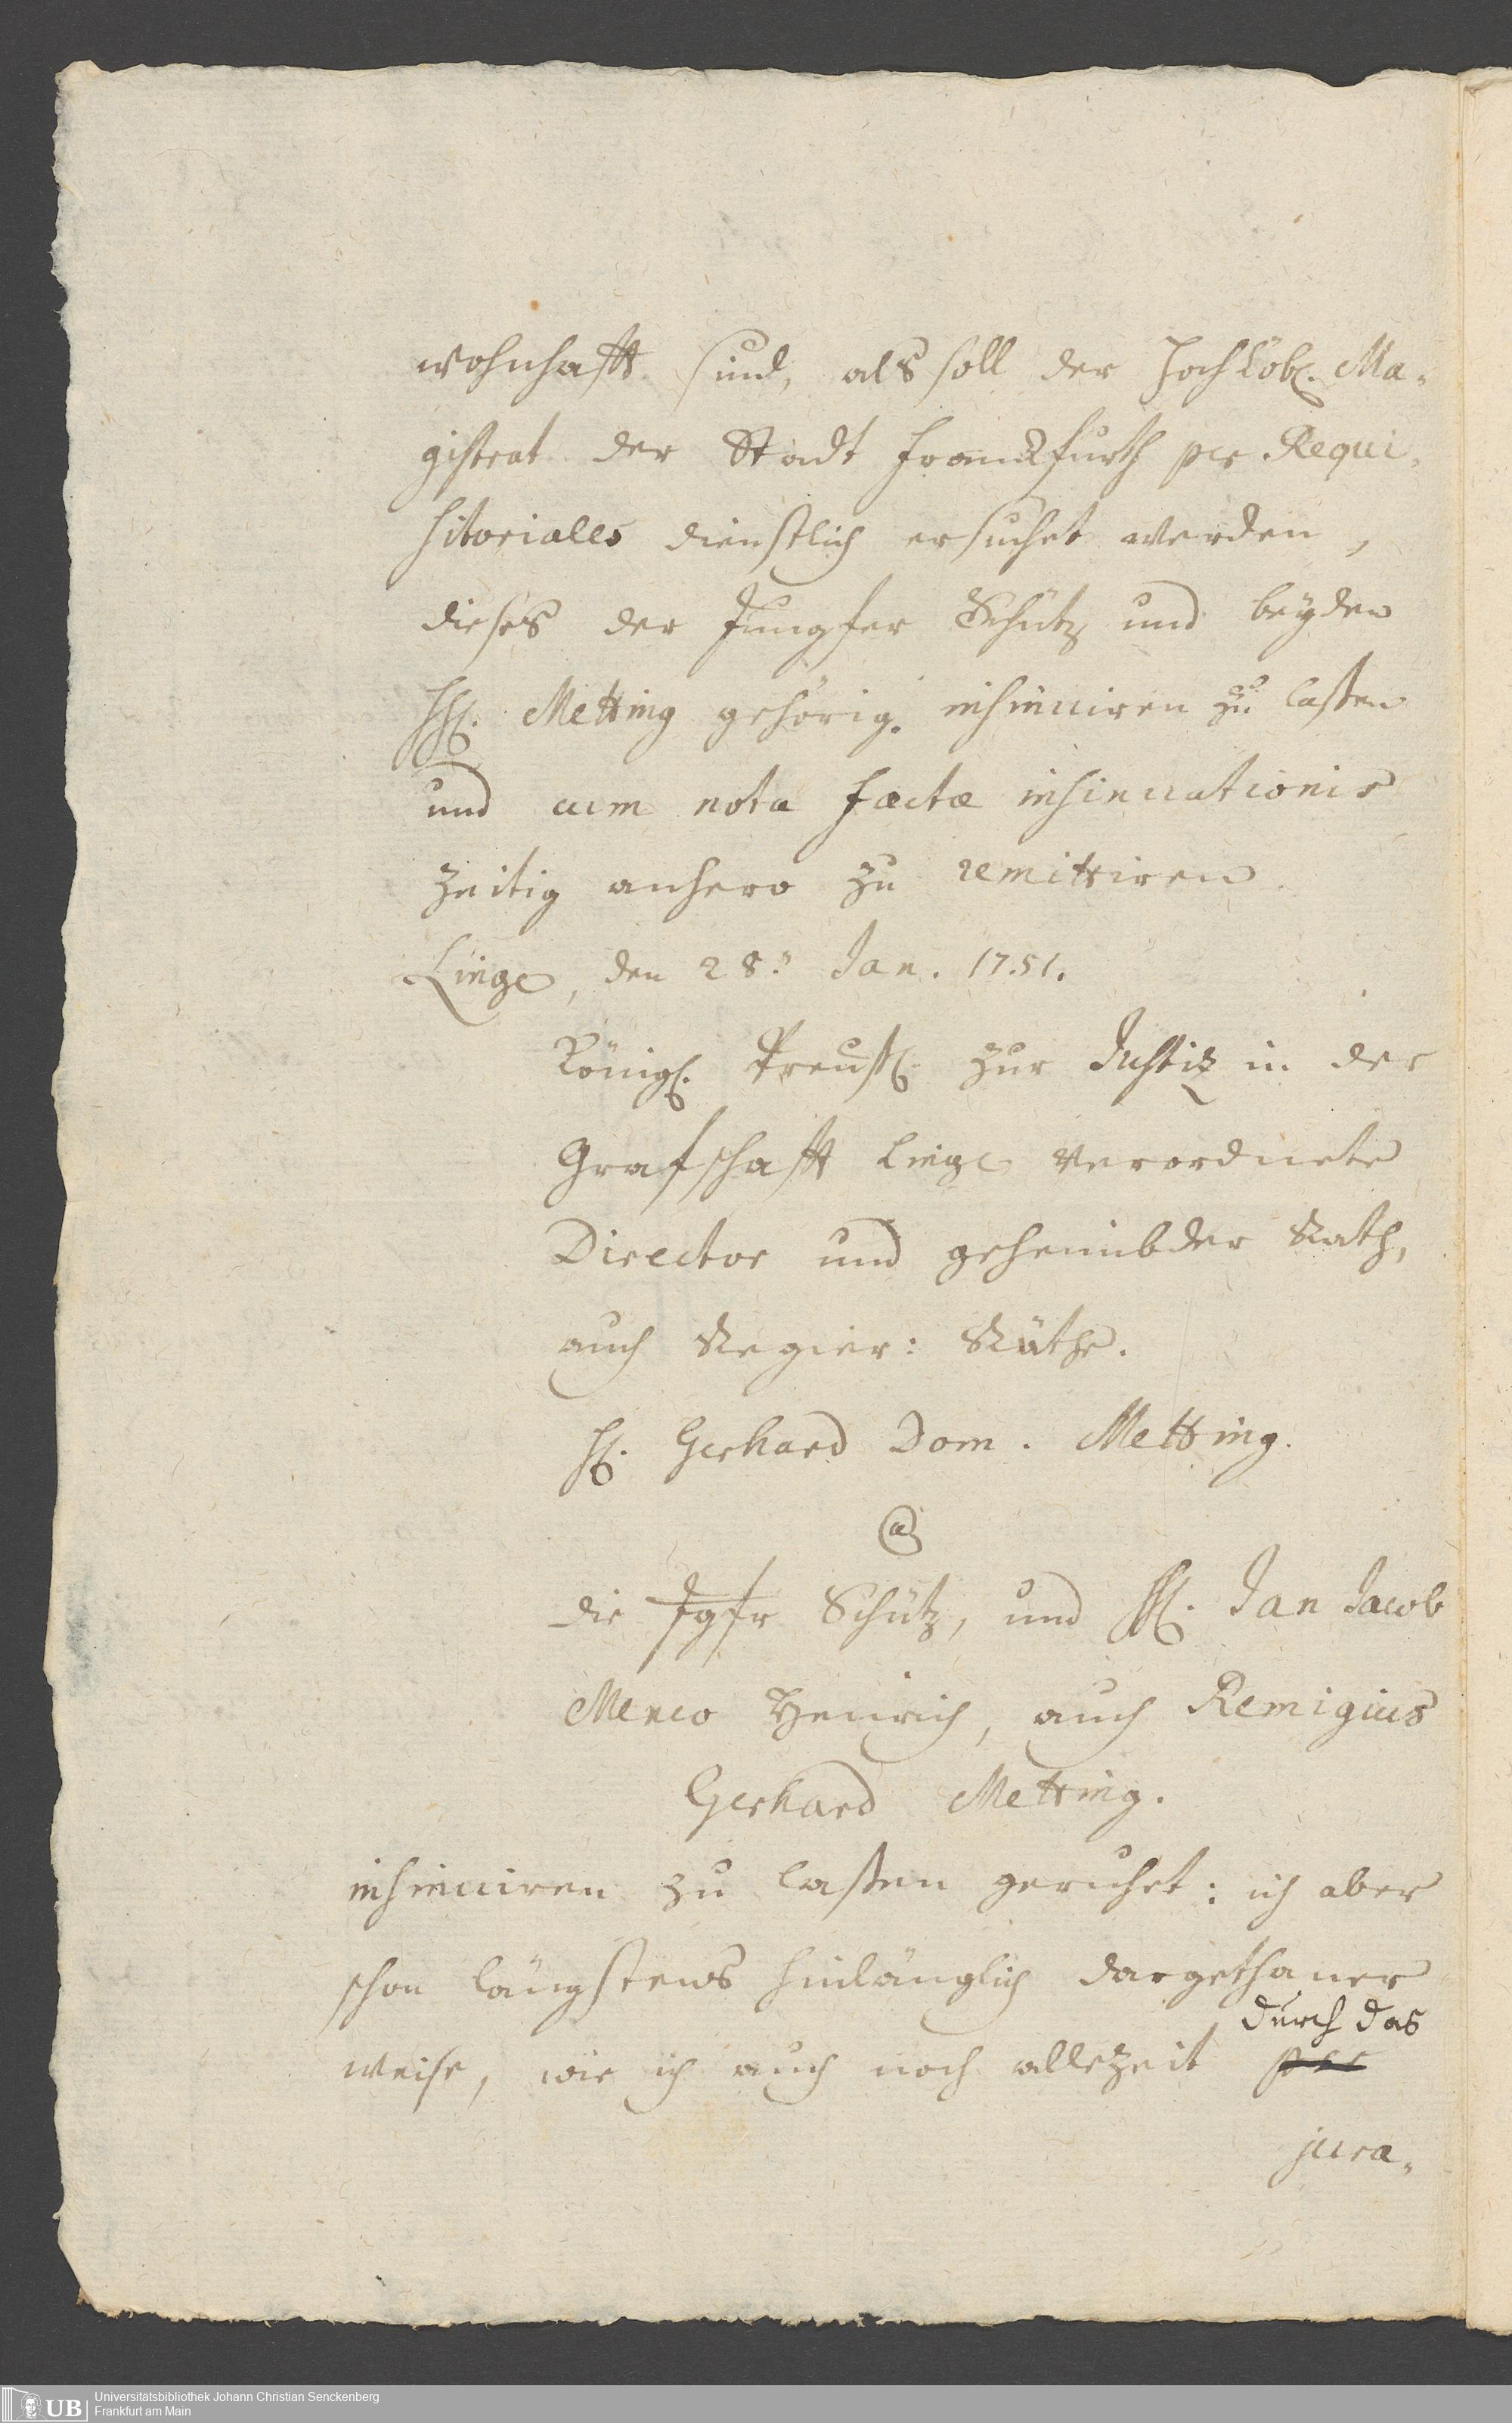 wohnhafft sind, als soll der Hochlöbl. Ma-
gistrat der Stadt Franckfurth per Requi-
sitoriales dienstlich ersuchet werden,
dieses der Jungfer Schütz und beyden
HH. Metting gehörig. insinuiren zu laßen
und cum nota factæ insinuationis
zeitig anhero zu remittiren
Linge, den 28.ⁿ Jan. 1751.
Königl. Preußl. zur Justiz in der
Grafschafft Linge verordnete
Director und geheimbder Rath,
auch Regier: Räthe.
H. Gerhard Dom. Metting.
@
die Jgfr Schütz, und HH. Jan Jacob
Menco Henrich, auch Remigius
Gerhard Metting.
insinuiren zu laßen geruhet: ich aber
schon längstens hinlänglich dargethaner
durch das
weise, wie ich auch noch allezeit per
jura-
Universitätsbibliothek Johann Christian Senckenberg
UB
Frankfurt am Main